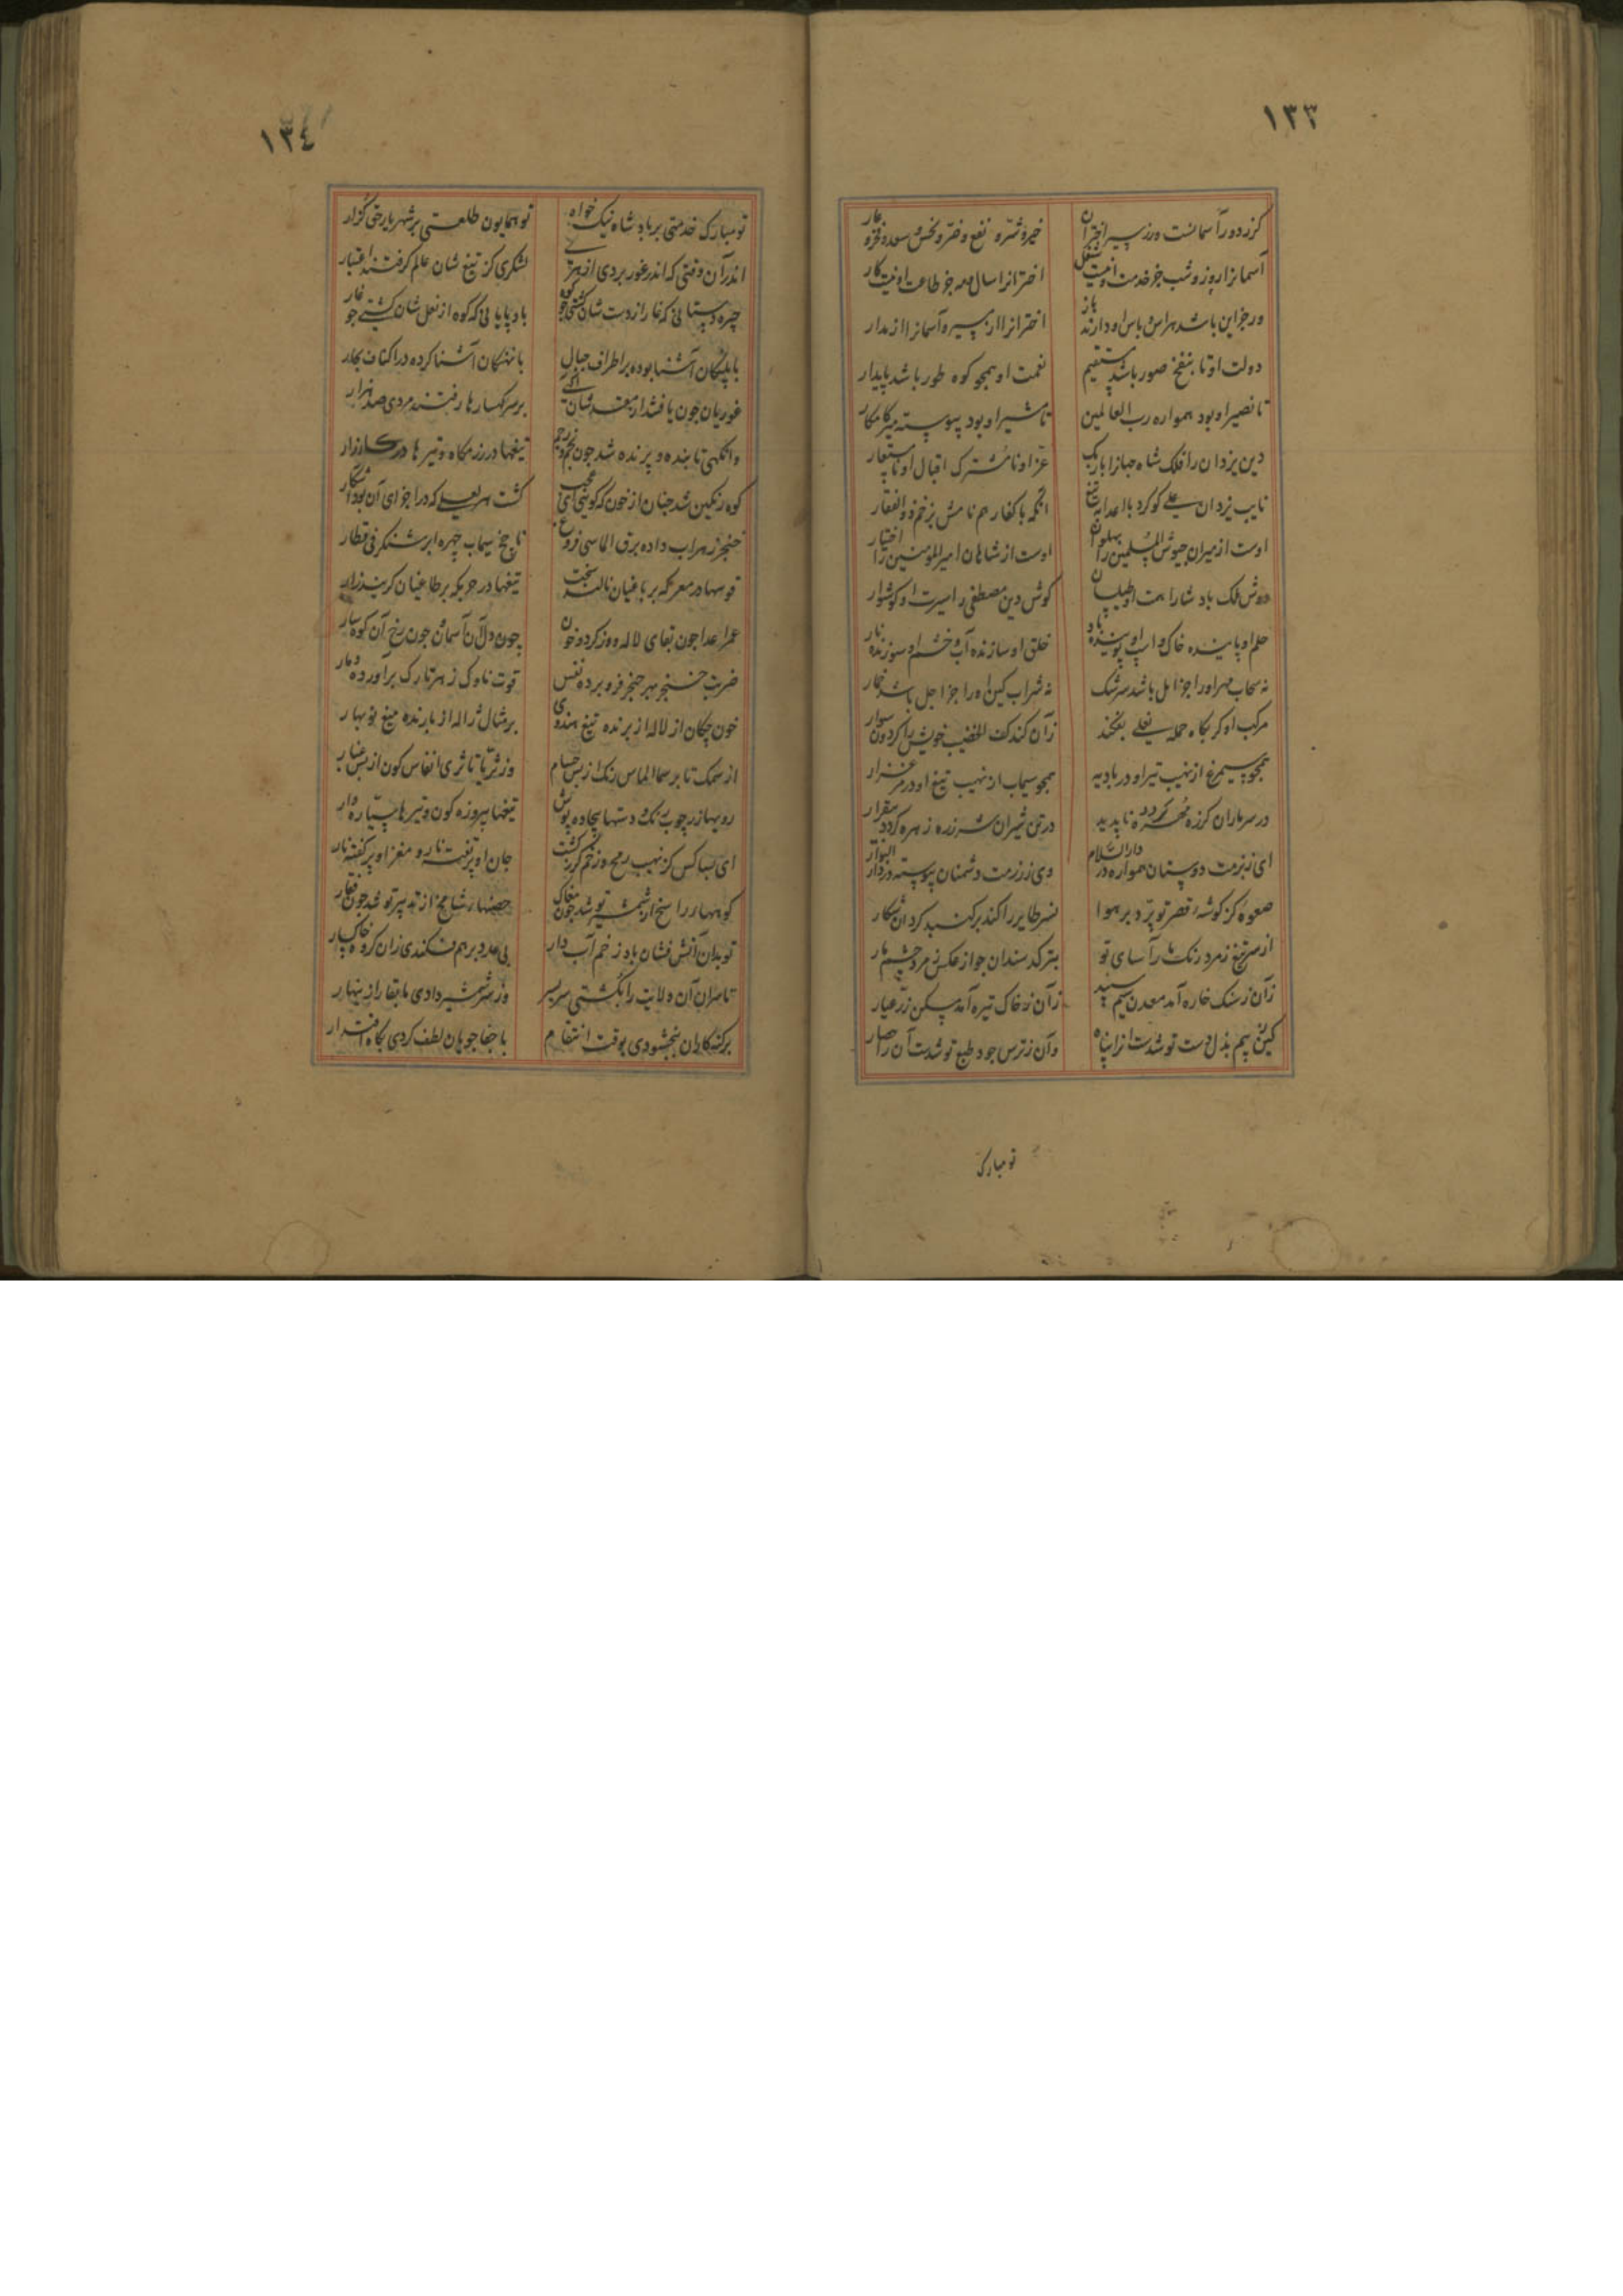 ١٣٣
گر ز دور آسمانست ور ز سیر اختران خیر و شر و نفع و ضر و نحس و سعد و فخر و عار
آسمانرا روز و شب جز خدمت او نیست شغل اخترانرا سال و مه جز طاعت او نیست کار
ور جز این باشد هراس و باس او دارند باز اخترانرا از مسیر و آسمانرا از مدار
دولت او تا بنفخ صور باشد مستقیم نعمت او همچو کوه طور باشد پایدار
تا نصیر او بود همواره رب العالمین تا مشیر او بود پیوسته میر کامکار
دین یزدان را فلک شاه جهانرا یاریک عز او نامشترک اقبال او نامستعار
نایب یزدان علی کو کرد با اعدا به تیغ آنکه با کفار هم نامش بزخم ذوالفقار
اوست از میران جیوش المسلمین را پهلوان اوست از شاهان امیر المومنین را اختیار
دوش ملک پادشا را همت او طیلسان گوش دین مصطفی را سیرت او گوشوار
حلم او پاینده خاک و اسب او پوینده باد خلق او سازنده آب و خشم او سوزنده نار
نه سحاب مهر او را جز امل باشد سرشک نه شراب کین او را جز اجل باشد خمار
مرکب او گر بگاه حمله نعلی بفکند زان کند کف الخضیب خویش را گردون سوار
همچو سیمرغ از نهیب تیر او در بادیه همچو سیماب از نهیب تیغ او در مرغزار
در سر ماران گرزه مهره گردد ناپدید در تن شیران شرزه زهره گردد بیقرار
ای ز بزمت دوستان همواره در دار السلام وی ز رزمت دشمنان پیوسته در دار البوار
صعوه کز گوشه قصر تو پرد بر هوا نسر طایر را کند بر گنبد گردان شکار
از سر تیغ زمرد رنگ مارآسای تو بترکد سندان جو از عکس زمرد چشم مار
زان ز سنگ خاره آمد معدن سیم سپید زان ز خاک تیره آمد مسکن زر عیار
کین ز بیم بذل دست تو شدست انرا پناه وان ز ترس جود طبع تو شدست آنرا حصار
تو مبارک
١٣٤
تو مبارک خدمتی بر پادشاه نیک خواه تو همایون طلعتی بر شهریار حق گزار
اندر آن وقتی که اندر غور بردی از هری لشکری کز تیغ شان عالم گرفتند اعتبار
چیره دستانی که غار از دست شان گشتی چو کوه باد پایانی که کوه از نعل شان گشتی چو غار
با پلنگان آشنا بوده بر اطراف جبال با نهنگان آشنا کرده در اکناف بحار
غوریان چون یافتند از مقدمشان آگهی بر سر کهسارها رفتند مردی صد هزار
وانگهی تابنده و پرنده شد چون نجم و رجم تیغها در رزمگاه و تیرها در کارزار
کوه رنگین شد چنان از خون که گوئی ای عجب گشت هر لعلی که در اجزای آن بود آشکار
خنجر زهراب داده برق الماسی فروغ ناچخ سیماب چهره ابر شنگرفی قطار
قوسها در معرکه بر باغیان نالنده سخت تیغها در حربگه بر طاغیان گرینده زار
عمر اعدا چون بقای لاله و ورد خزان چون دل آن آسمان چون رخ آن کوهسار
ضربت خنجر بهر حنجر فرو برده نفس قوت ناوک ز هر تارک برآورده دمار
خون چکان از لاله از برنده تیغ هندوی بر مثال ژاله از بارنده میغ نوبهار
از سمک تا بر سما الماس رنگ از بس حسام وز ثریا تا ثری انقاس گون از بس غبار
رویها زر چوب رنگ و دستها بیجاده پوش تیغها پیروزه گون و تیرها سیاره وار
ای بسا کس کز نهیب رمح و زخم گرز گشت جان او پر تفته نار و مغز او پر کفته نار
کوههای راسخ از شمشیر تو شد چون مغاک حصنهای شامخ از تدبیر تو شد چون قفار
تو بدان آتش فشان باد ز خم آب دار بی عدد بر هم فکندی زان گروه خاکسار
تا سران آن ولایت را بکشتی سر بسر وز سر شمشیر دادی مابقا را زینهار
بر گنهکاران ببخشودی بوقت انتقام با جفا جویان لطف کردی بگاه اقتدار